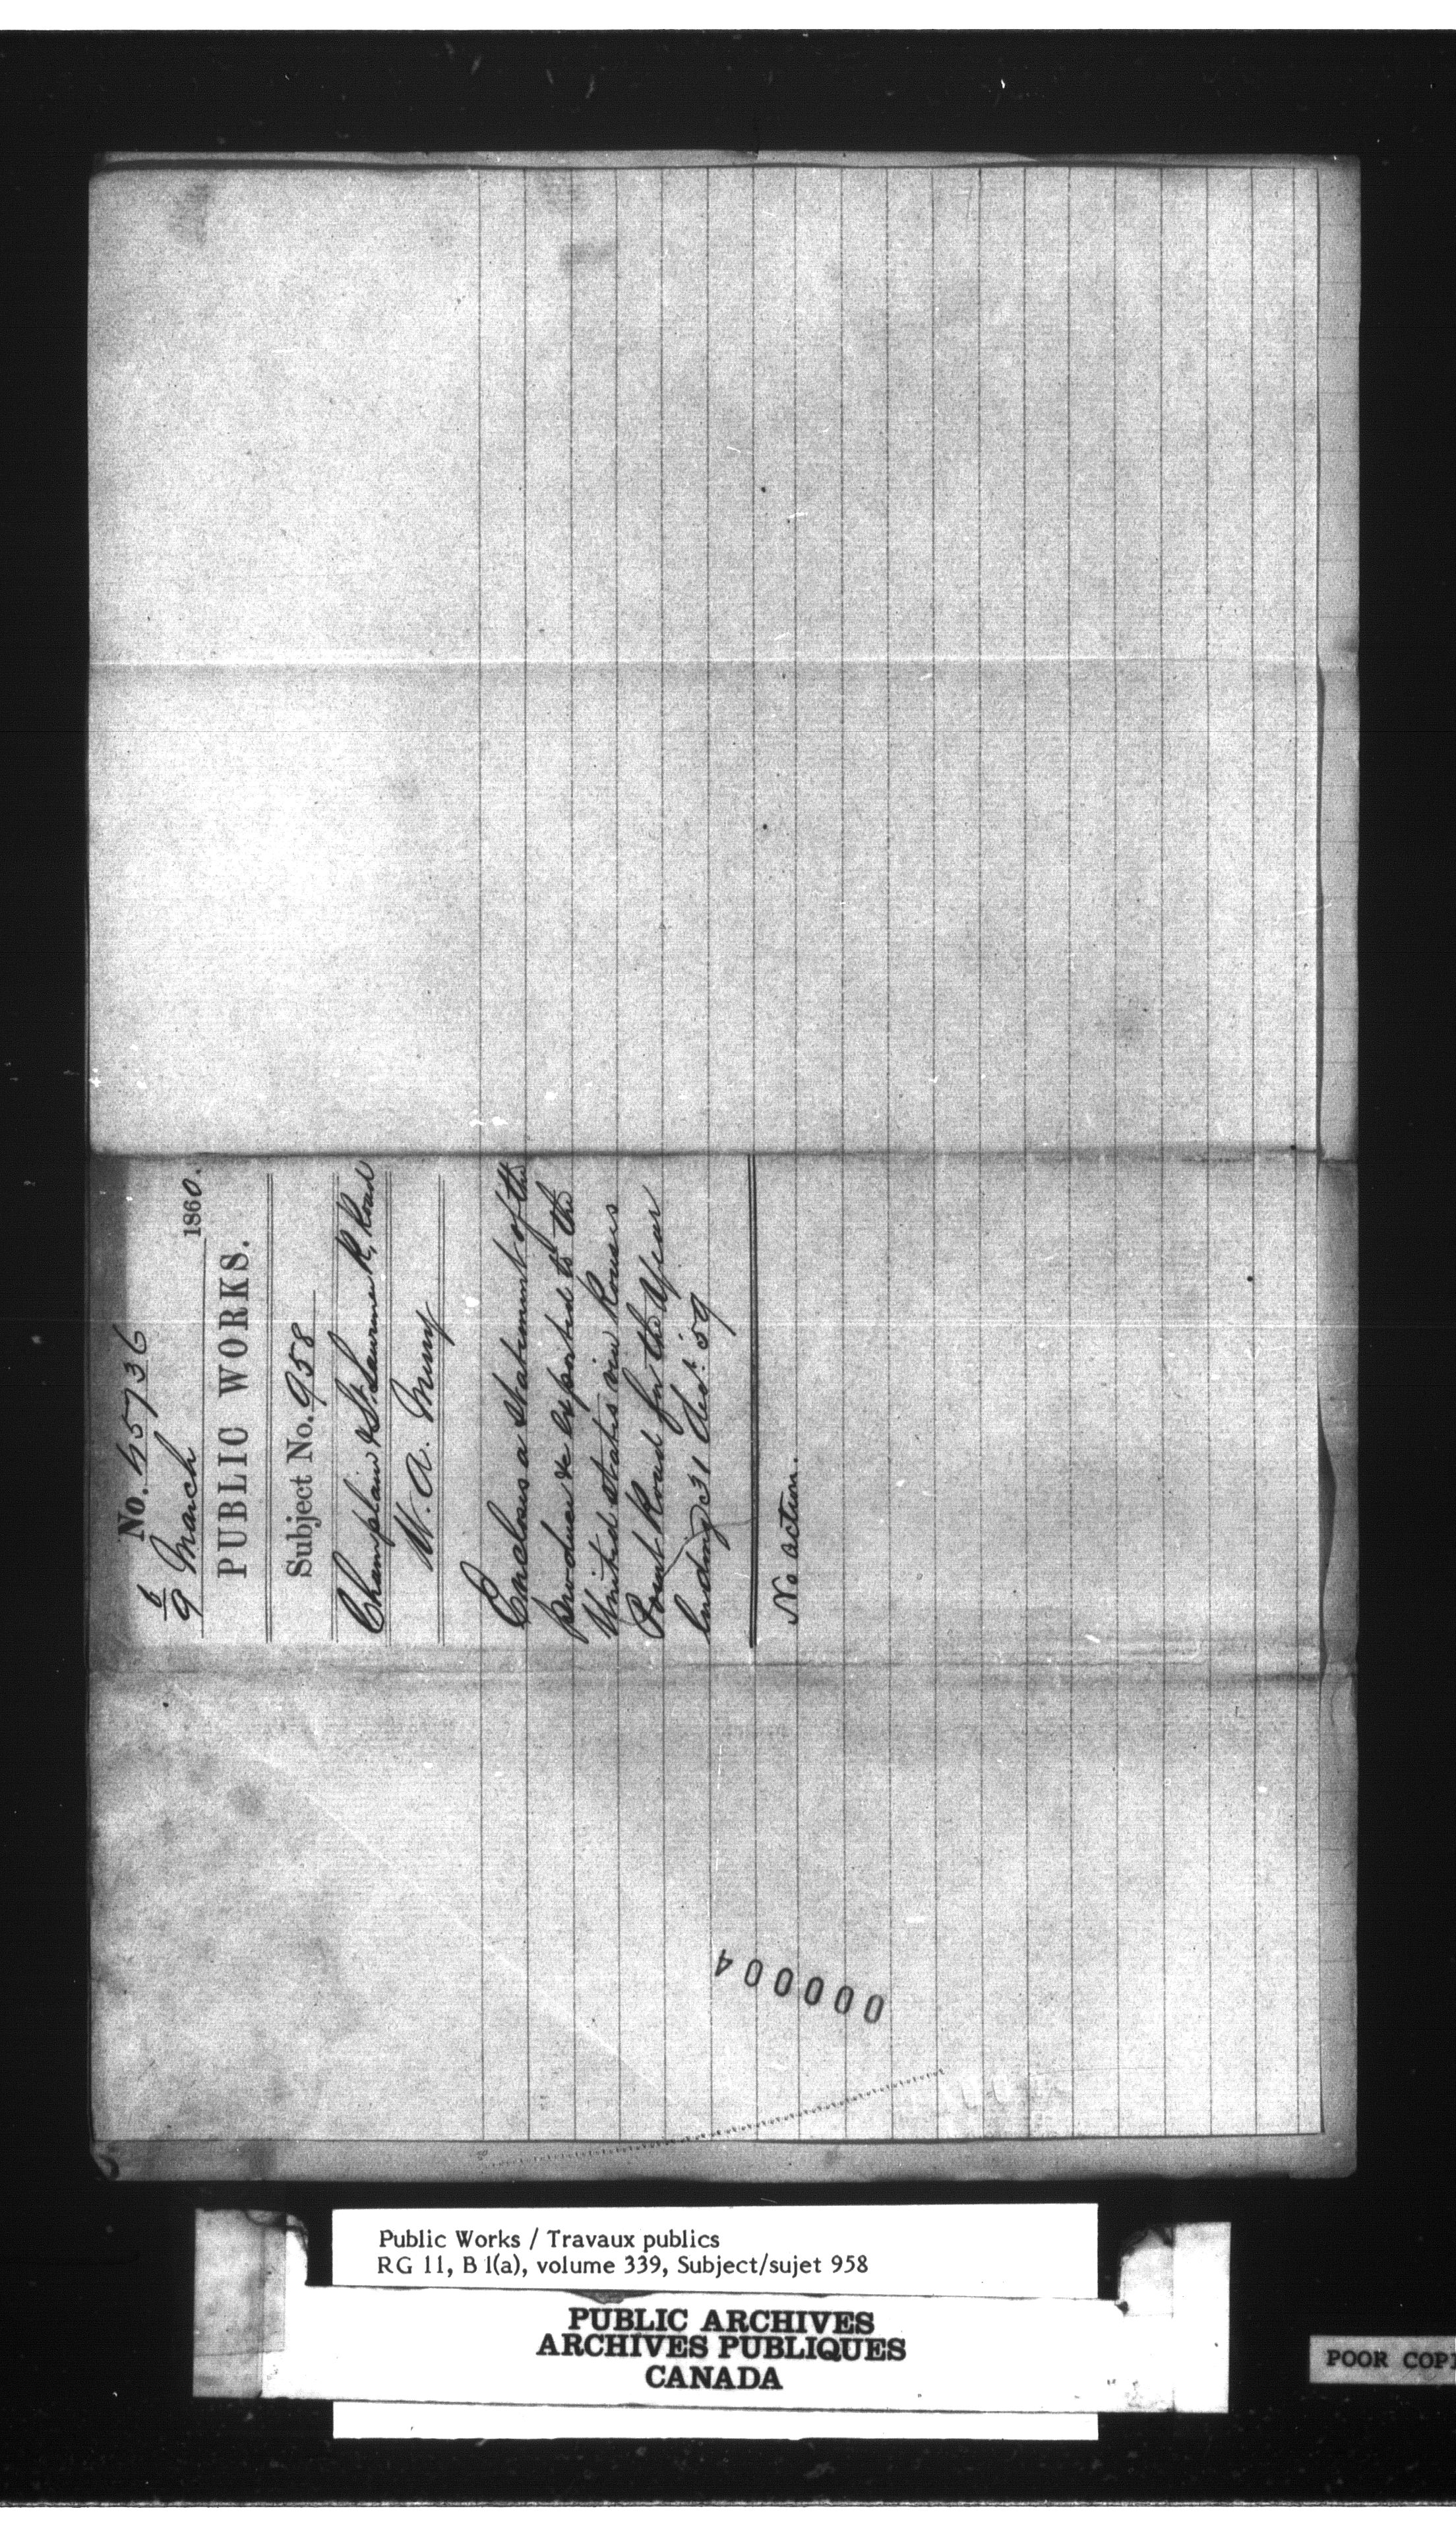 No. 45736
6/9 March 1860.
PUBLIC WORKS.
Subject No. 958
Champlain & St. Lawrence R. Road
W. A. Merry
Encloses a statement of the
produce &c exported to the
United States via Rouses
Point Road for the year
ending 31 Decr. '59
No action.
000004
Public Works / Travaux publics
RG 11, B 1(a), volume 339, Subject/sujet 958
PUBLIC ARCHIVES
ARCHIVES PUBLIQUES
CANADA
POOR COPY